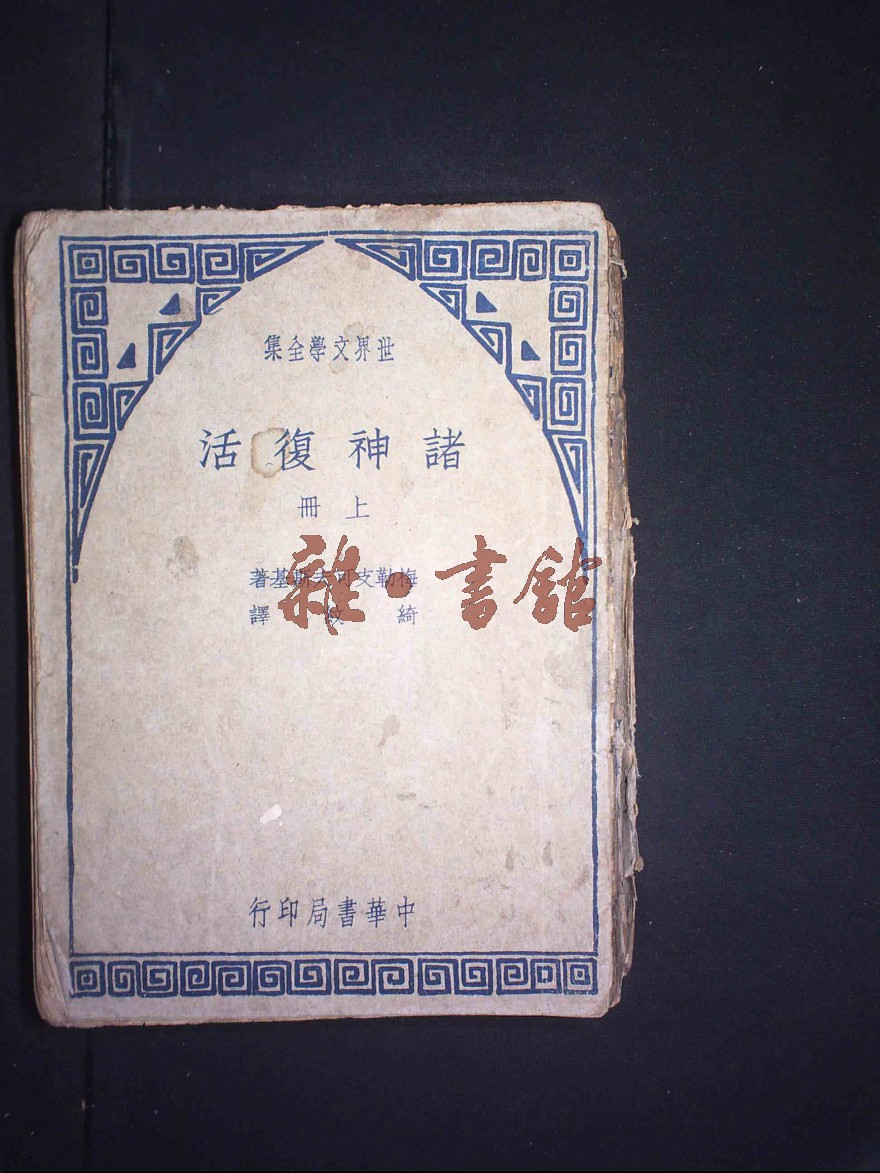 世界文學全集
諸神復活
上冊
梅勒支可夫斯基著
綺紋譯
雜·書館
中華書局印行